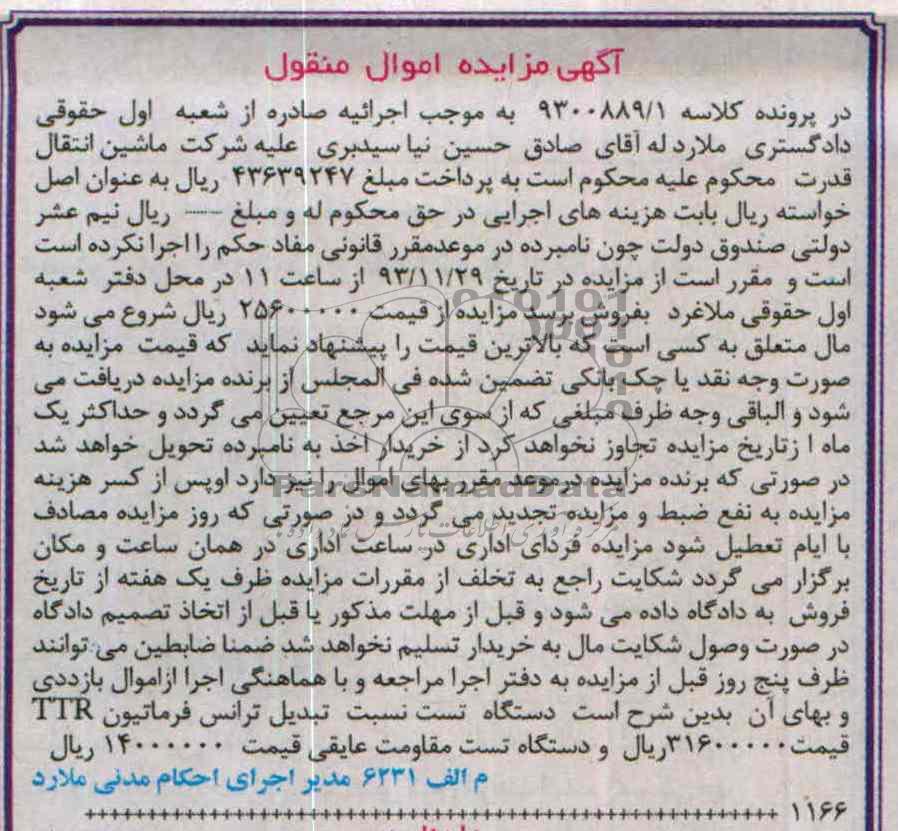 آگهی مزایده اموال منقول
در پرونده کلاسه ۹۳۰۰۸۸۹/۱ به موجب اجرائیه صادره از شعبه اول حقوقی
دادگستری ملارد له آقای صادق حسین نیا سیدبری علیه شرکت ماشین انتقال
قدرت محکوم علیه محکوم است به پرداخت مبلغ ۴۳۶۳۹۲۴۷ ریال به عنوان اصل
خواسته ریال بابت هزینه های اجرایی در حق محکوم له و مبلغ ------ ریال نیم عشر
دولتی صندوق دولت چون نامبرده در موعدمقرر قانونی مفاد حکم را اجرا نکرده است
است و مقرر است از مزایده در تاریخ ۹۳/۱۱/۲۹ از ساعت ۱۱ در محل دفتر شعبه
اول حقوقی ملاغرد بفروش برسد مزایده از قیمت ۲۵۶۰۰۰۰۰۰ ریال شروع می شود
مال متعلق به کسی است که بالاترین قیمت را پیشنهاد نماید که قیمت مزایده به
صورت وجه نقد یا چک بانکی تضمین شده فی المجلس از برنده مزایده دریافت می
شود و الباقی وجه ظرف مبلغی که از سوی این مرجع تعیین می گردد و حداکثر یک
ماه ا زتاریخ مزایده تجاوز نخواهد کرد از خریدار اخذ به نامبرده تحویل خواهد شد
در صورتی که برنده مزایده درموعد مقرر بهای اموال را نپردارد اوپس از کسر هزینه
مزایده به نفع ضبط و مزایده تجدید می گردد و در صورتی که روز مزایده مصادف
با ایام تعطیل شود مزایده فردای اداری در ساعت اداری در همان ساعت و مکان
برگزار می گردد شکایت راجع به تخلف از مقررات مزایده ظرف یک هفته از تاریخ
فروش به دادگاه داده می شود و قبل از مهلت مذکور یا قبل از اتخاذ تصمیم دادگاه
در صورت وصول شکایت مال به خریدار تسلیم نخواهد شد ضمنا ضابطین می توانند
ظرف پنج روز قبل از مزایده به دفتر اجرا مراجعه و با هماهنگی اجرا ازاموال بازددی
و بهای آن بدین شرح است دستگاه تست نسبت تبدیل ترانس فرماتیون TTR
قیمت۳۱۶۰۰۰۰۰ریال و دستگاه تست مقاومت عایقی قیمت ۱۴۰۰۰۰۰۰ ریال
م الف ۶۲۳۱ مدیر اجرای احکام مدنی ملارد
۱۱۶۶
ParsNamadData